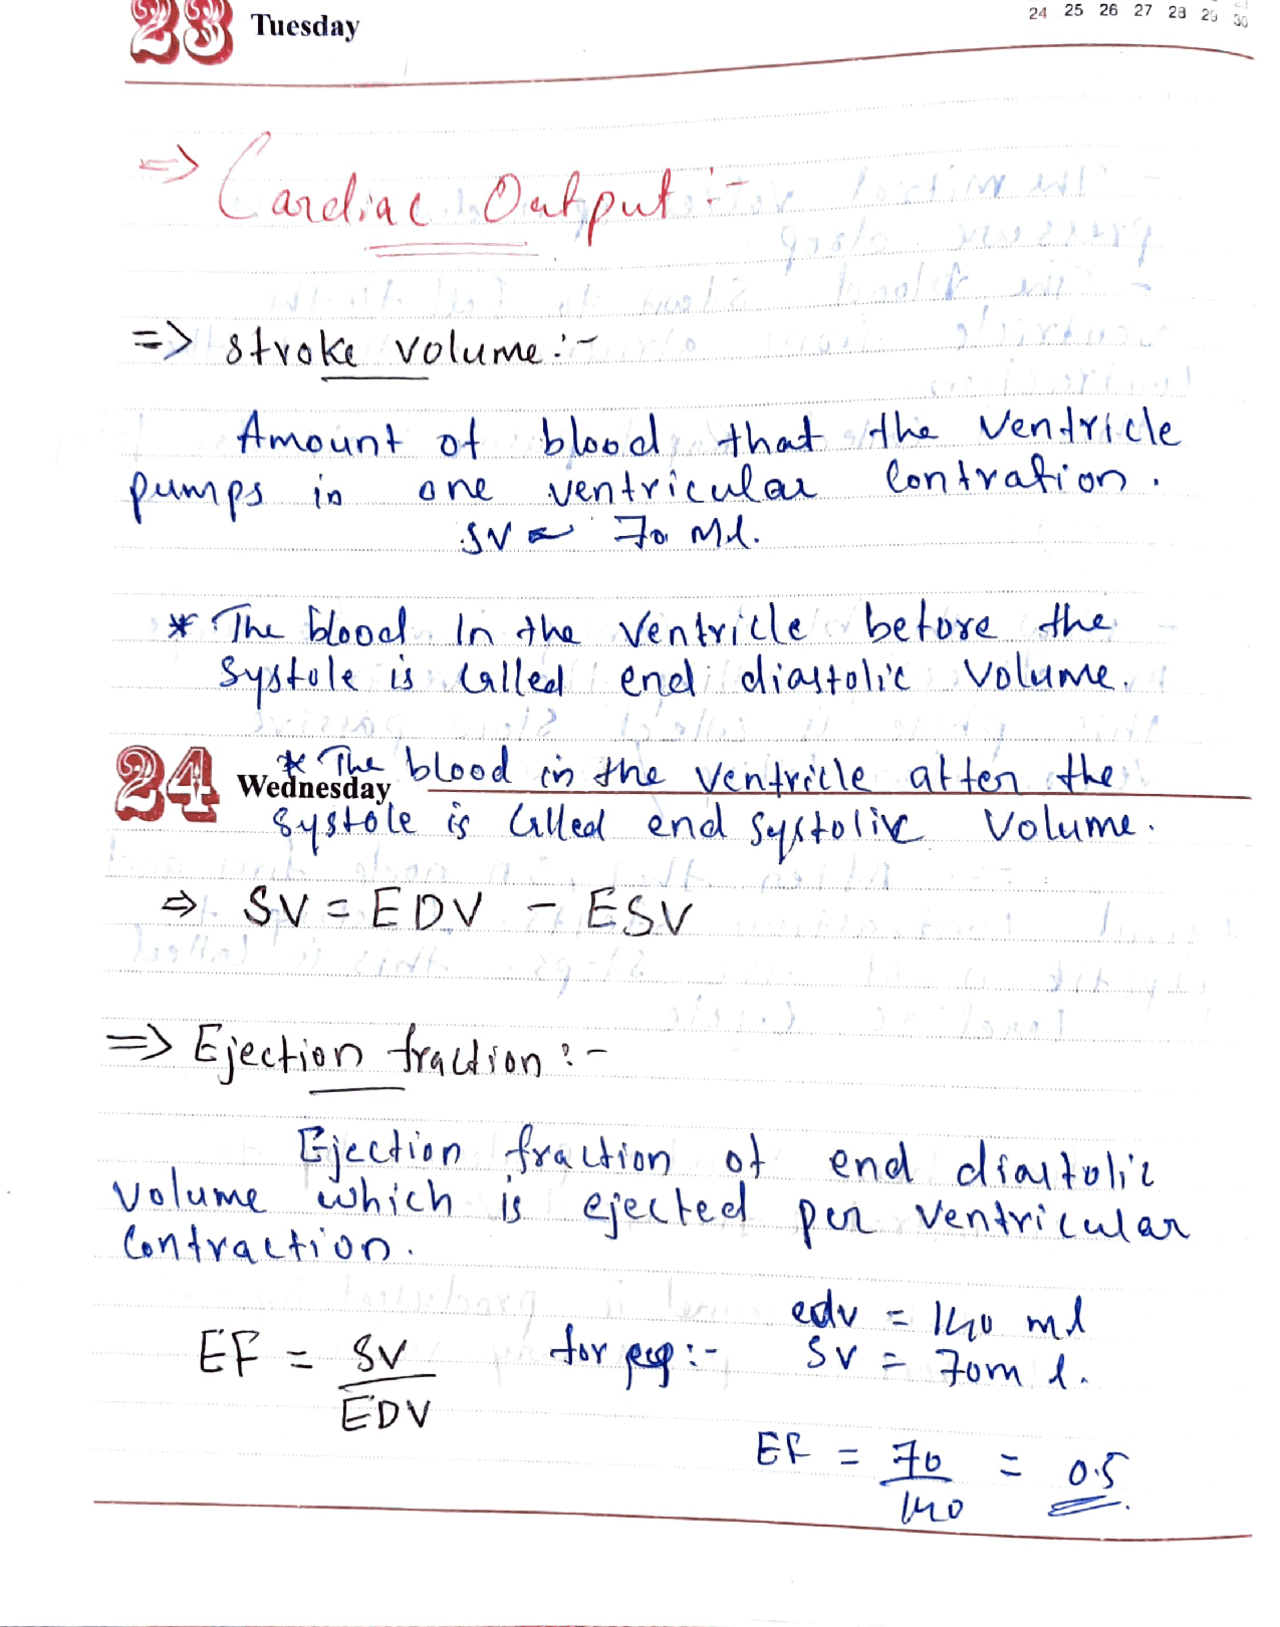 23 Tuesday
24 25 26 27 28 29 30
=> Cardiac Output :-
=> Stroke volume :-
Amount of blood that the ventricle
pumps in one ventricular Contration.
SV = 70 Ml.
* The blood In the Ventricle before the
Systole is Called end diastolic Volume.
* The blood in the ventricle after the
24 Wednesday
Systole is Called end systolic Volume.
=> SV = EDV - ESV
=> Ejection fraction :-
Ejection fraction of end diastolic
Volume which is ejected per Ventricular
Contraction.
edv = 140 ml
EF = SV / EDV for :- SV = 70m l.
EF = 70 / 140 = 0.5